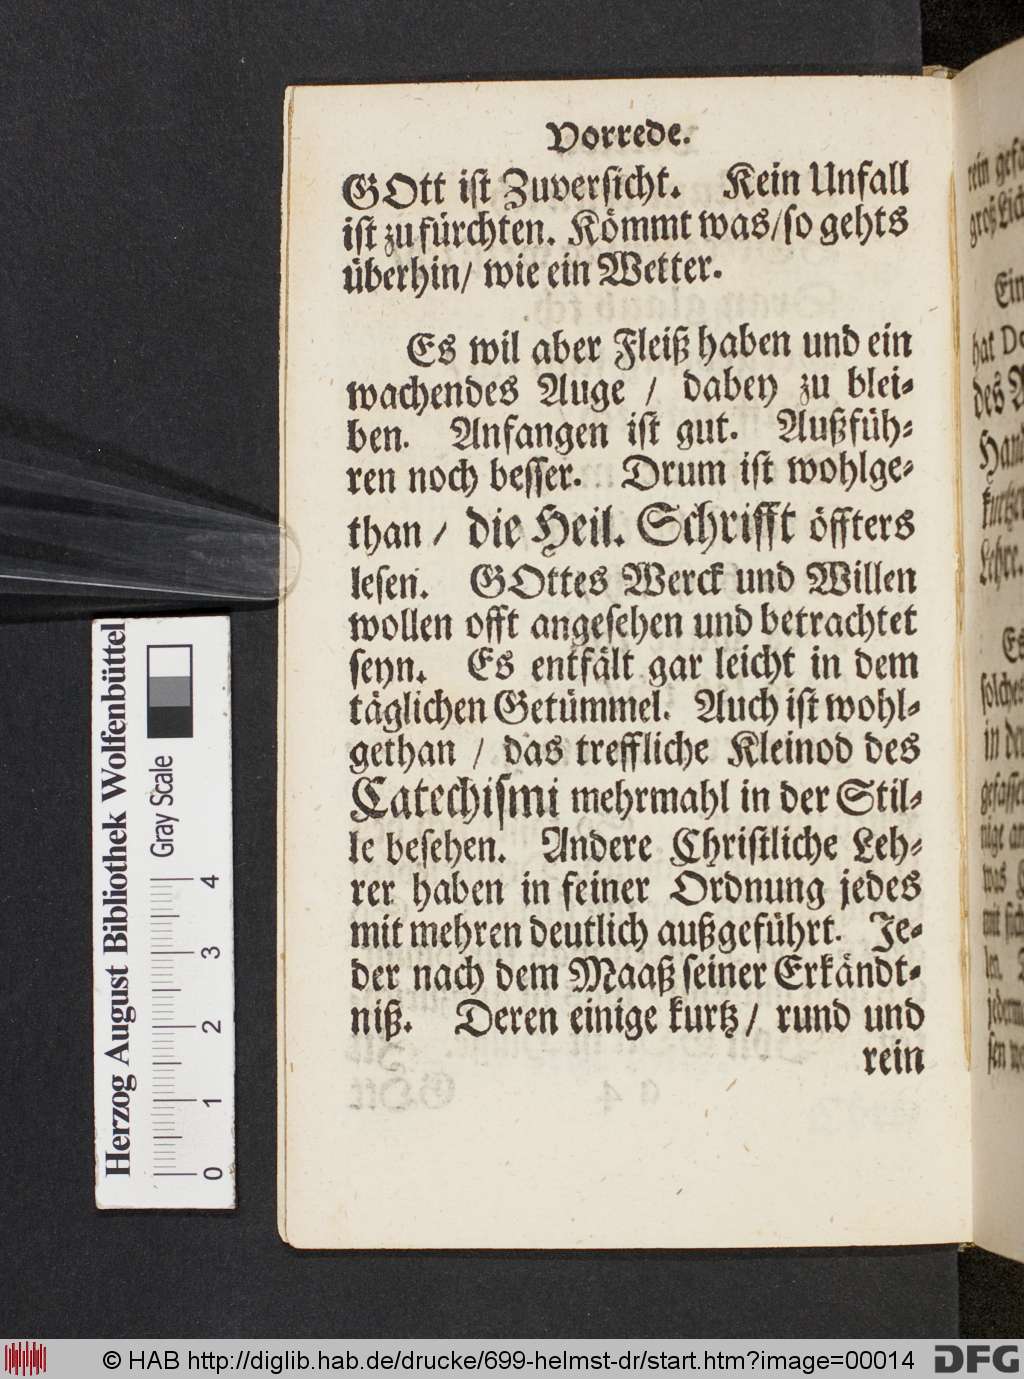 Vorrede.
GOtt ist Zuversicht. Kein Unfall
ist zu fürchten. Kömmt was/so gehts
überhin/ wie ein Wetter.
Es wil aber Fleiß haben und ein
wachendes Auge / dabey zu blei-
ben. Anfangen ist gut. Außfüh-
ren noch besser. Drum ist wohlge-
than / die Heil. Schrifft öffters
lesen. GOttes Werck und Willen
wollen offt angesehen und betrachtet
seyn. Es entfält gar leicht in dem
täglichen Getümmel. Auch ist wohl-
gethan / das treffliche Kleinod des
Catechismi mehrmahl in der Stil-
le besehen. Andere Christliche Leh-
rer haben in feiner Ordnung jedes
mit mehren deutlich außgeführt. Je-
der nach dem Maaß seiner Erkändt-
niß. Deren einige kurtz / rund und
rein
Herzog August Bibliothek Wolfenbüttel
Gray Scale
0 1 2 3 4
© HAB http://diglib.hab.de/drucke/699-helmst-dr/start.htm?image=00014
DFG